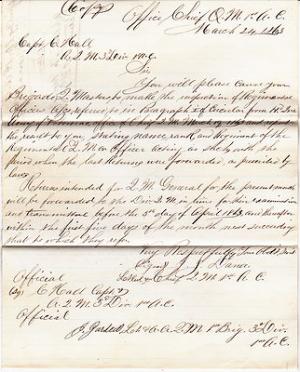 (Copy)
Office Chief Q.M. 1st A.C.
March 24 1863
Capt. C Hall
A.Q.M. 3d Div 1st A.C.
Sir
You will please cause your
Brigade Q Masters to make the inspection of Regimental
Officers referred to in Paragraph of Circular from
the result to you stating name, rank and Regiment of the
Regimental Q.M. or Officer acting as such, with the
period when the last Returns were forwarded, as provided by
laws.
Returns intended for Q.M. General for the present month
will be forwarded to the Div. Q.M. in time for his examination
and transmittal before the 5th day of April 1863, and thereafter
within the first five days of the month next succeeding
that to which they refer.
Very Respectfully Your Obt. Servt
Signed J.J. Dana
Lt Col & Chief Q.M. 1st A.C.
Official
(Sg) C Hall Capt &
A.Q.M. 3d Div. 1st A.C.
Official
Lt & A.A.Q.M. 1st Brig. 3d Div.
1st A.C.